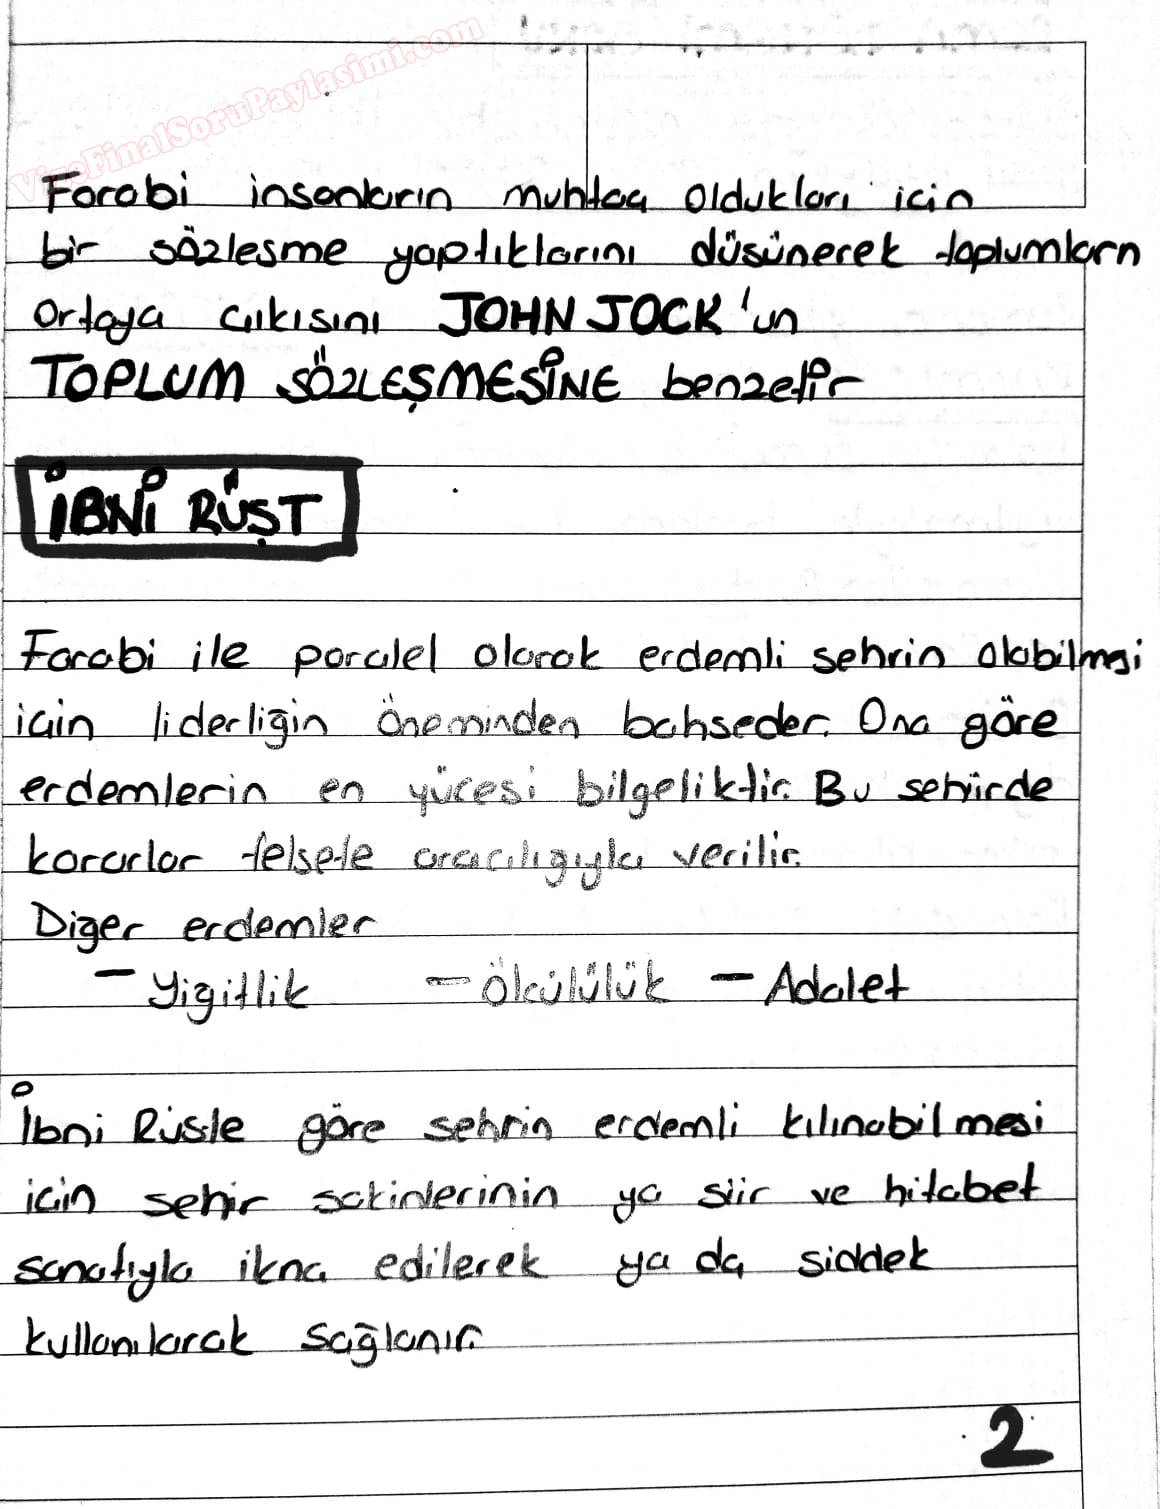 VizeFinalSoruPaylasimi.com
Farabi insanların muhtaç oldukları için
bir sözlesme yaptıklarını düsünerek toplumların
ortaya çıkısını JOHN JOCK'un
TOPLUM SÖZLEŞMESİNE benzetir
İBNİ RÜŞT
Farabi ile paralel olarak erdemli sehrin olabilmesi
için liderliğin öneminden bahseder. Ona göre
erdemlerin en yücesi bilgeliktir. Bu sehirde
kararlar felsefe aracılığıyla verilir.
Diğer erdemler
- Yiğitlik - Ölçülülük - Adalet
İbni Rüste göre sehrin erdemli kılınabilmesi
için sehir sakinlerinin ya siir ve hitabet
sanatıyla ikna edilerek ya da siddet
kullanılarak sağlanır.
2